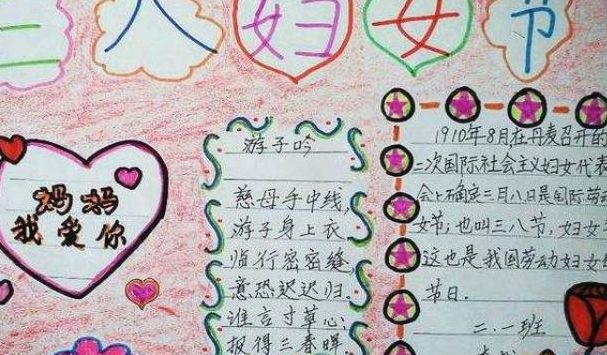 三八妇女节
妈妈
我爱你
游子吟
慈母手中线,
游子身上衣
临行密密缝
意恐迟迟归.
谁言寸草心
报得三春晖
1910年8月在丹麦召开的
二次国际社会主义妇女代表
会上确定三月八日是国际劳
女节,也叫三八节,妇女
这也是我国劳动妇女
节日.
二.一班